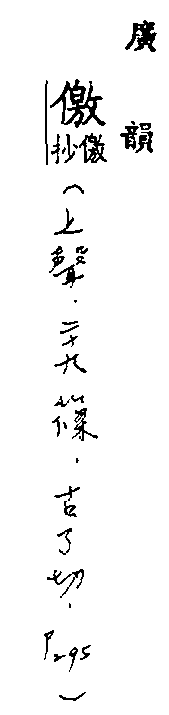 廣韻
儌
抄儌
(上聲．二十九篠．古了切．P295)